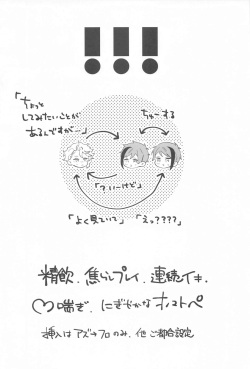 !!!
「ちょっと
してみたいことが
あるんですが…」
ちゅーする
「？いーけど」
「よく見ていて」
「えっ????」
精飲. 焦らしプレイ. 連続イキ.
♡喘ぎ. にぎやかな オノマトペ
挿入はアズ→フロのみ. 他 ご都合設定